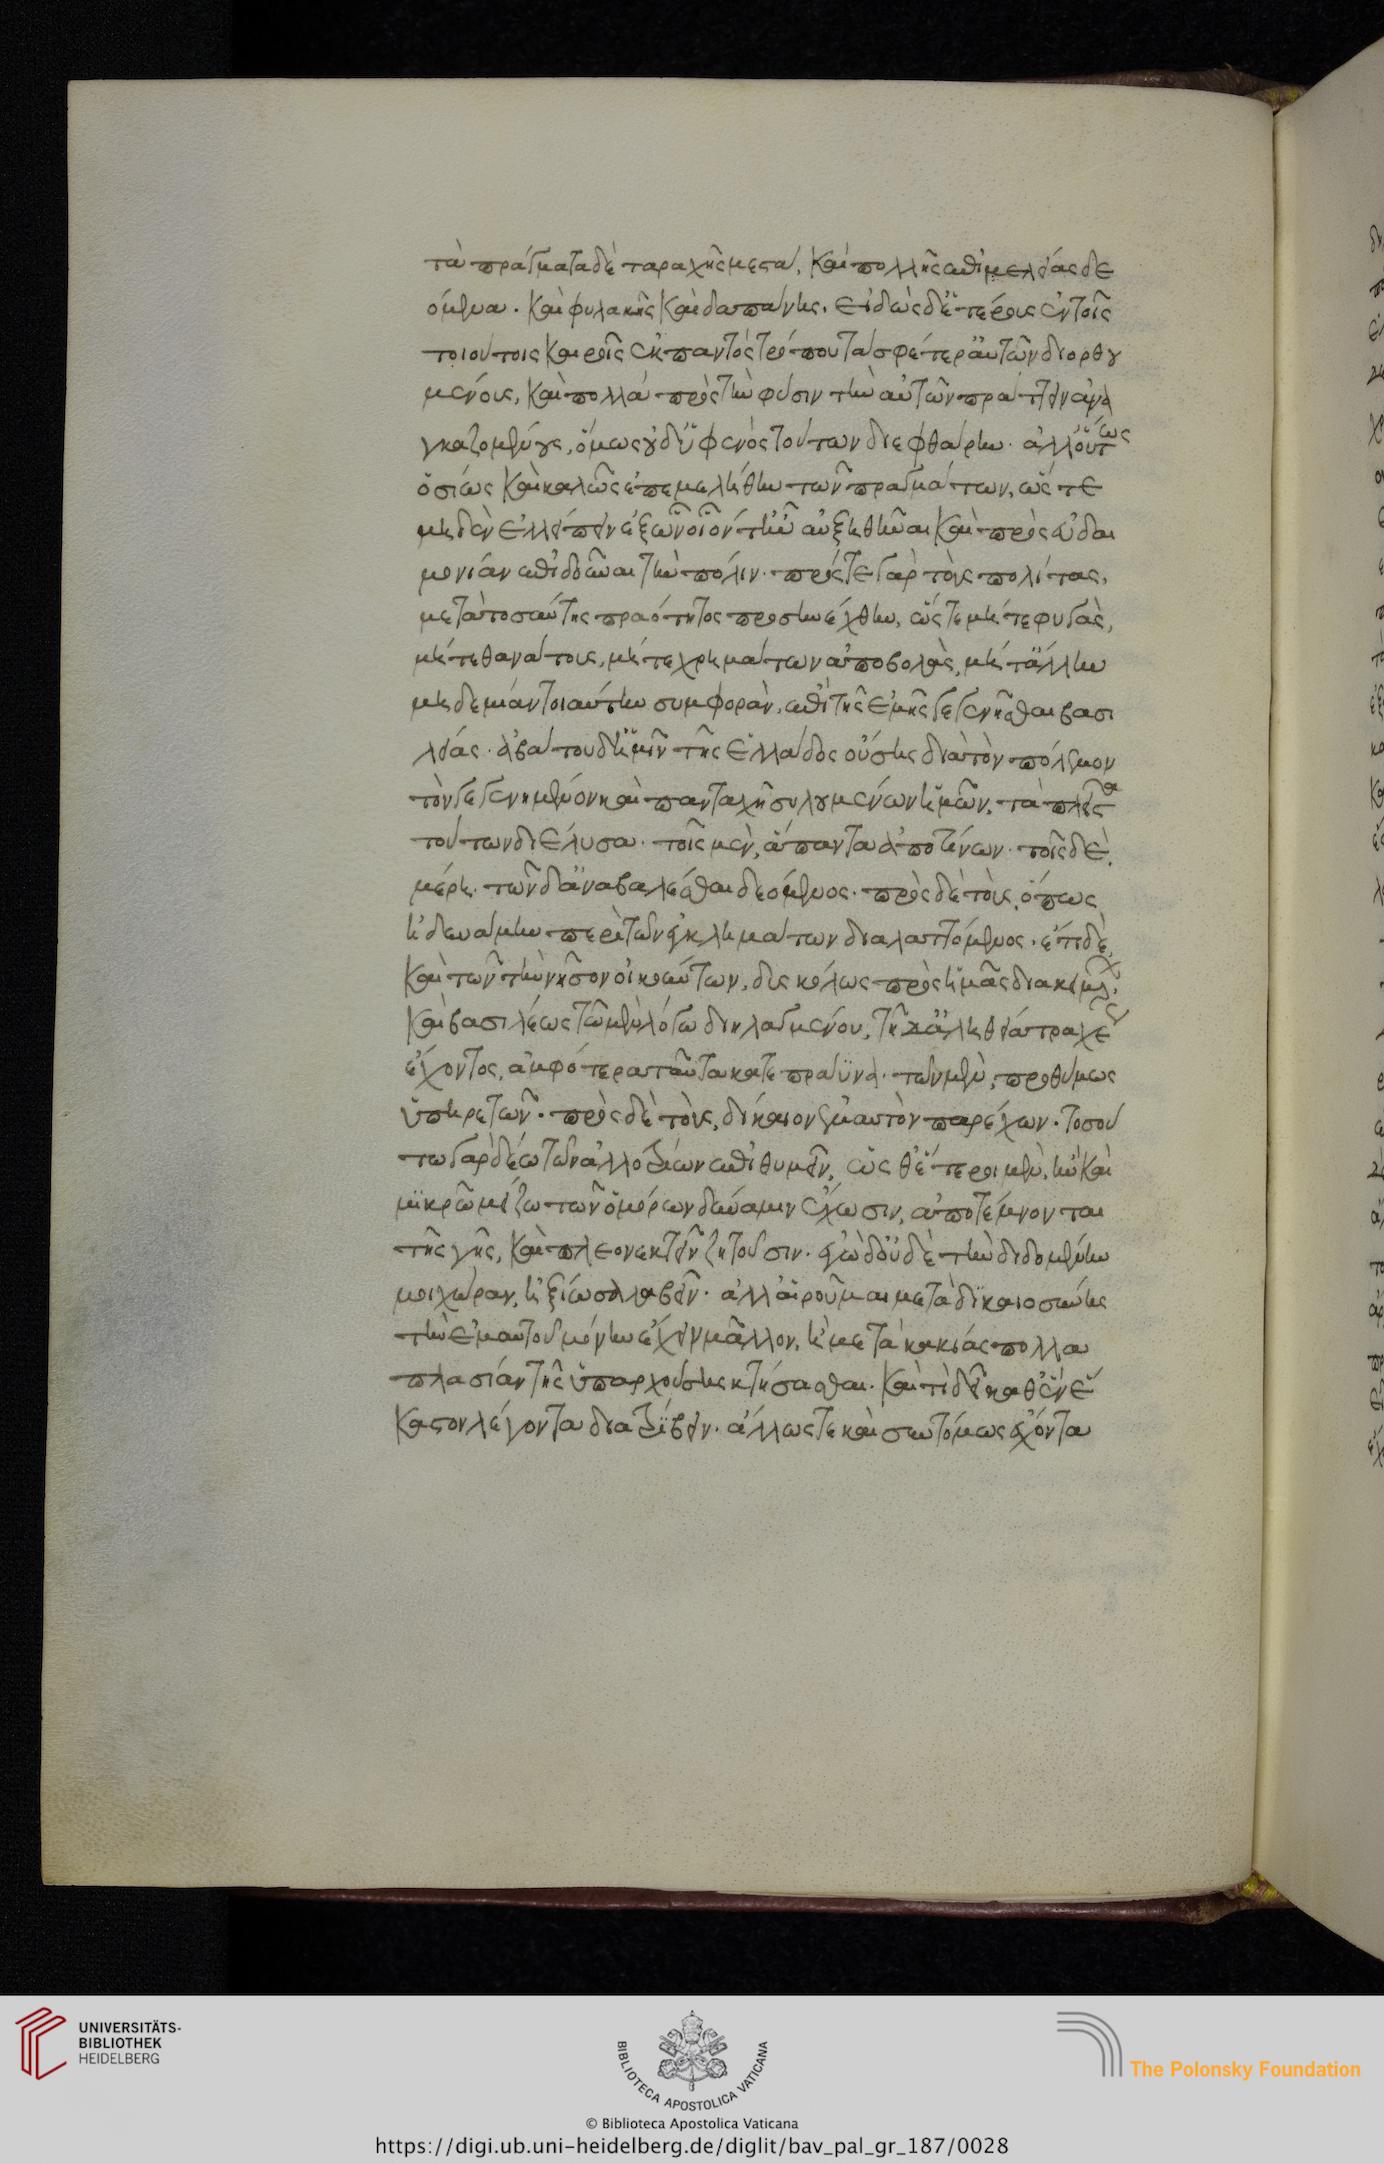 τὰ πράγματα δὲ ταραχῆς μεστὰ, καὶ πολλῆς ἐπιμελείας δε
όμενα. καὶ φυλακῆς καὶ δαπάνης. εἰδὼς δ' ἑτέρους ἐν τοῖς
τοιούτοις καιροῖς ἐκ παντὸς τρόπου τὰ σφέτερ' αὐτῶν διορθου
μένους, καὶ πολλὰ πρὸς τὴν φύσιν τὴν αὑτῶν πράττειν ἀνα
γκαζομένους, ὅμως οὐδ' ὑφ' ἑνὸς τούτων διεφθάρην. ἀλλ' οὕτως
ὁσίως καὶ καλῶς ἐπεμελήθην τῶν πραγμάτων, ὥστε
μηδὲν ἐλλείπειν ἐξ ὧν οἷόν τ' ἦν αὐξηθῆναι καὶ πρὸς εὐδαι
μονίαν ἐπιδοῦναι τὴν πόλιν. πρός τε γὰρ τοὺς πολίτας,
μετὰ τοσαύτης πραότητος προσηνέχθην, ὥστε μήτε φυγὰς,
μήτε θανάτους, μήτε χρημάτων ἀποβολὰς, μήτ' ἄλλην
μηδεμίαν τοιαύτην συμφορὰν, ἐπὶ τῆς ἐμῆς γεγενῆσθαι βασι
λείας. ἀβάτου δ' ἡμῖν τῆς Ἑλλάδος οὔσης διὰ τὸν πόλεμον
τὸν γεγενημένον καὶ πανταχῆ συλουμένων ἡμῶν, τὰ πλεῖστα
τούτων διέλυσα. τοῖς μὲν, ἅπαντα ἀποτίνων. τοῖς δὲ,
μέρη. τῶν δ' ἀναβαλέσθαι δεόμενος. πρὸς δὲ τοὺς, ὅπως
ἠδυνάμην περὶ τῶν ἐγκλημάτων διαλαττόμενος. ἔτι δὲ,
καὶ τῶν τὴν νῆσον οἰκούντων, δυσκόλως πρὸς ἡμᾶς διακειμέν.
καὶ βασιλέως τῶ μὲν λόγω διηλαγμένου, τῆ δ' ἀληθεία τραχέως
ἔχοντος, ἀμφότερα ταῦτα κατεπράϋνα. τῶ μὲν, προθύμως
ὑπηρετῶν. πρὸς δὲ τοὺς, δίκαιον ἐμαυτὸν παρέχων. τοσού
τω γὰρ δέω τῶν ἀλλοτρίων ἐπιθυμεῖν, ὥσθ' ἕτεροι μὲν, ἢν καὶ
μικρῶ μείζω τῶν ὁμόρων δύναμιν ἔχωσιν, ἀποτέμνονται
τῆς γῆς, καὶ πλεονεκτεῖν ζητοῦσιν. ἐγὼ δ' οὐδὲ τὴν διδομένην
μοι χώραν, ἠξίωσα λαβεῖν. ἀλλ' αἱροῦμαι μετὰ δικαιοσύνης
τὴν ἐμαυτοῦ μόνην ἔχειν μᾶλλον, ἢ μετὰ κακίας πολλα
πλασίαν τῆς ὑπαρχούσης κτήσασθαι. καὶ τί δεῖ καθ' ἓν ἕ
καστον λέγοντα διατρίβειν. ἄλλως τε καὶ συντόμως ἔχοντα
UNIVERSITÄTS-
BIBLIOTHEK
HEIDELBERG
BIBLIOTECA APOSTOLICA VATICANA
The Polonsky Foundation
© Biblioteca Apostolica Vaticana
https://digi.ub.uni-heidelberg.de/diglit/bav_pal_gr_187/0028